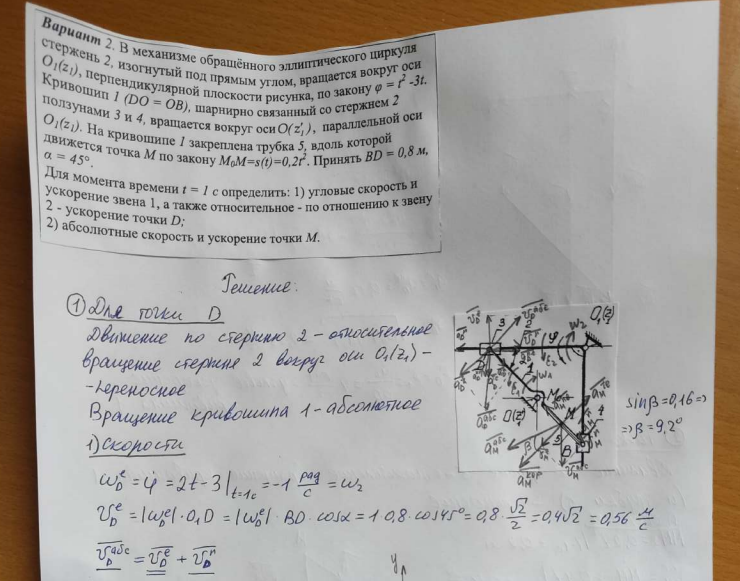 Вариант 2. В механизме обращённого эллиптического циркуля
стержень 2, изогнутый под прямым углом, вращается вокруг оси
O₁(z₁), перпендикулярной плоскости рисунка, по закону φ = t² -3t.
Кривошип 1 (DO = OB), шарнирно связанный со стержнем 2
ползунами 3 и 4, вращается вокруг оси O(z'₁), параллельной оси
O₁(z₁). На кривошипе 1 закреплена трубка 5, вдоль которой
движется точка M по закону M₀M=s(t)=0,2t². Принять BD = 0,8 м,
α = 45°.
Для момента времени t = 1 с определить: 1) угловые скорость и
ускорение звена 1, а также относительное - по отношению к звену
2 - ускорение точки D;
2) абсолютные скорость и ускорение точки M.
Решение:
① Для точки D
Движение по стержню 2 - относительное
вращение стержня 2 вокруг оси O₁(z₁) -
-переносное
Вращение кривошипа 1 - абсолютное
1) Скорости
ω_D^e = φ̇ = 2t-3|_{t=1c} = -1 рад/с = ω₂
v_D^e = |ω_D^e|·O₁D = |ω_D^e|·BD·cosα = 1·0,8·cos45° = 0,8·√2/2 = 0,4√2 = 0,56 м/с
v_D^абс = v_D^e + v_D^r
y
O₁(z₁)
ω₂
φ
3
v_D^e
v_D^абс
D
M
O(z'₁)
4
5
β
B
a_M^абс
a_M^кор
sinβ=0,16 ⇒
⇒ β=9,2°